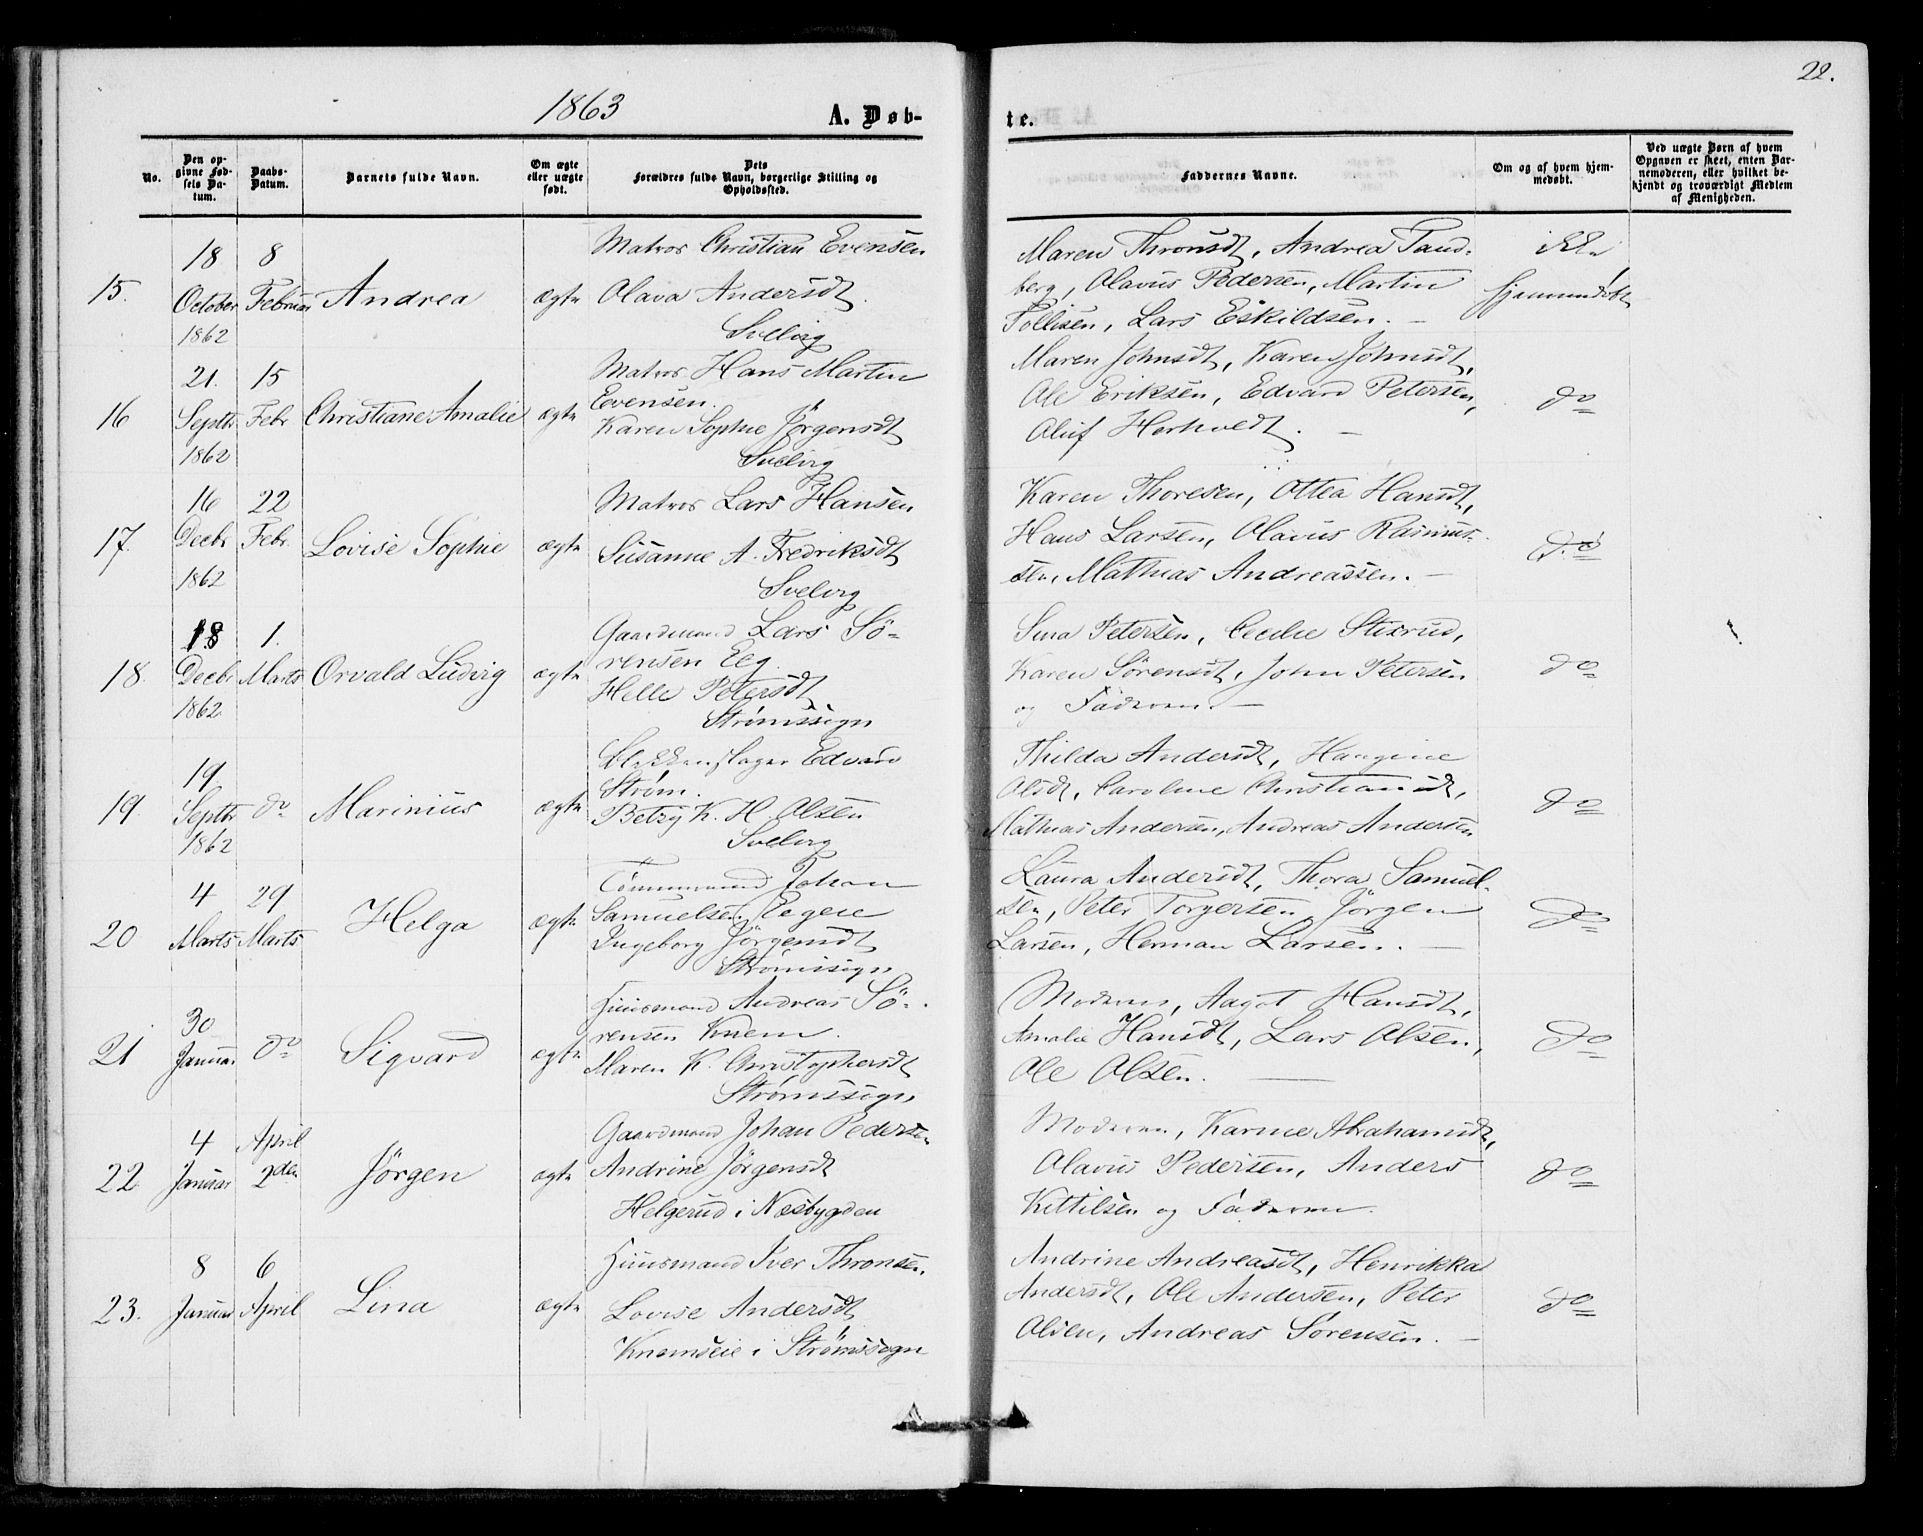 22.
1863
A. Døb-
te.
No.
Den op-
givne Fød-
sels Da-
tum.
Daabs-
Datum.
Barnets fulde Navn.
Om ægte
eller uægte
født.
Dets
Forældres fulde Navn, borgerlige Stilling og
Opholdssted.
Faddernes Navne.
Om og af hvem hjem-
medøbt.
Ved uægte Børn af hvem
Opgaven er skeet, enten Bar-
nemoderen, eller hvilket be-
kjendt og troværdigt Medlem
af Menigheden.
15.
18
October
1862
8
Februar
Andrea
ægte
Matros Christian Evensen
Olava Andersdt.
Svelvig
Maren Thronsdt, Andrea Tand-
berg, Olavus Pedersen, Martin
Tollisen, Lars Eskildsen. —
ikke
hjemmedøbt
16
21.
Septbr
1862
15
Febr
Christiane Amalie
ægte
Matros Hans Martin
Evensen.
Karen Sophie Jörgensdt
Svelvig
Maren Johnsdt, Karen Johnsdt,
Ole Eriksen, Edvard Petersen,
Oluf Horhvedt. —
do
17.
16
Decbr
1862
22
Febr.
Lovise Sophie
ægte
Matros Lars Hansen
Susanne A. Fredriksdt
Svelvig
Karen Thoresen, Ottea Hansdt,
Hans Larsen, Olavus Rasmus-
sen, Mathias Andreassen. —
do
18.
18
Decbr
1862.
1.
Marts
Orvald Ludvig
ægte
Gaardmand Lars Sö-
rensen Eeg.
Helle Petersdt
Strømssogn
Sina Petersen, Cecilie Stixrud,
Karen Sørensdt, John Petersen
og Faderen. —
do
19.
19.
Septbr
1862
do
Marinius
ægte
Blikkenslager Edvard
Strøm.
Betzy K. H. Olsen
Svelvig
Thilda Andersdt, Hangine
Olsdt, Caroline Christiansdt,
Mathias Andersen, Andreas Andersen
do
20
4
Marts
29
Marts
Helga
ægte
Tømmermand Johan
Samuelsen Eegeie
Ingeborg Jörgensdt
Strømssogn
Laura Andersdt, Thora Samuel-
sen, Peter Torgersen, Jörgen
Larsen, Herman Larsen. —
do
21
30
Januar
do
Sigvard
ægte
Huusmand Andreas Sö-
rensen Knem.
Maren K. Christophersdt
Strømssogn
Moderen, Aagot Hansdt,
Amalie Hansdt, Lars Olsen,
Ole Olsen. —
do
22.
4
Januar
April
2den
Jörgen
ægte
Gaardmand Johan Pedersen
Andrine Jörgensdt
Helgerud i Nesbygden
Moderen, Karine Abrahamsdt,
Olavus Pedersen, Anders
Kittilsen og Faderen.
do
23.
8
Januar
6
April
Lina
ægte
Huusmand Iver Thronsen.
Lovise Andersdt
Knemseie i Strömssogn
Andrine Andreasdt, Henrikka
Andersdt, Ole Andersen, Peter
Olsen, Andreas Sorensen. —
do